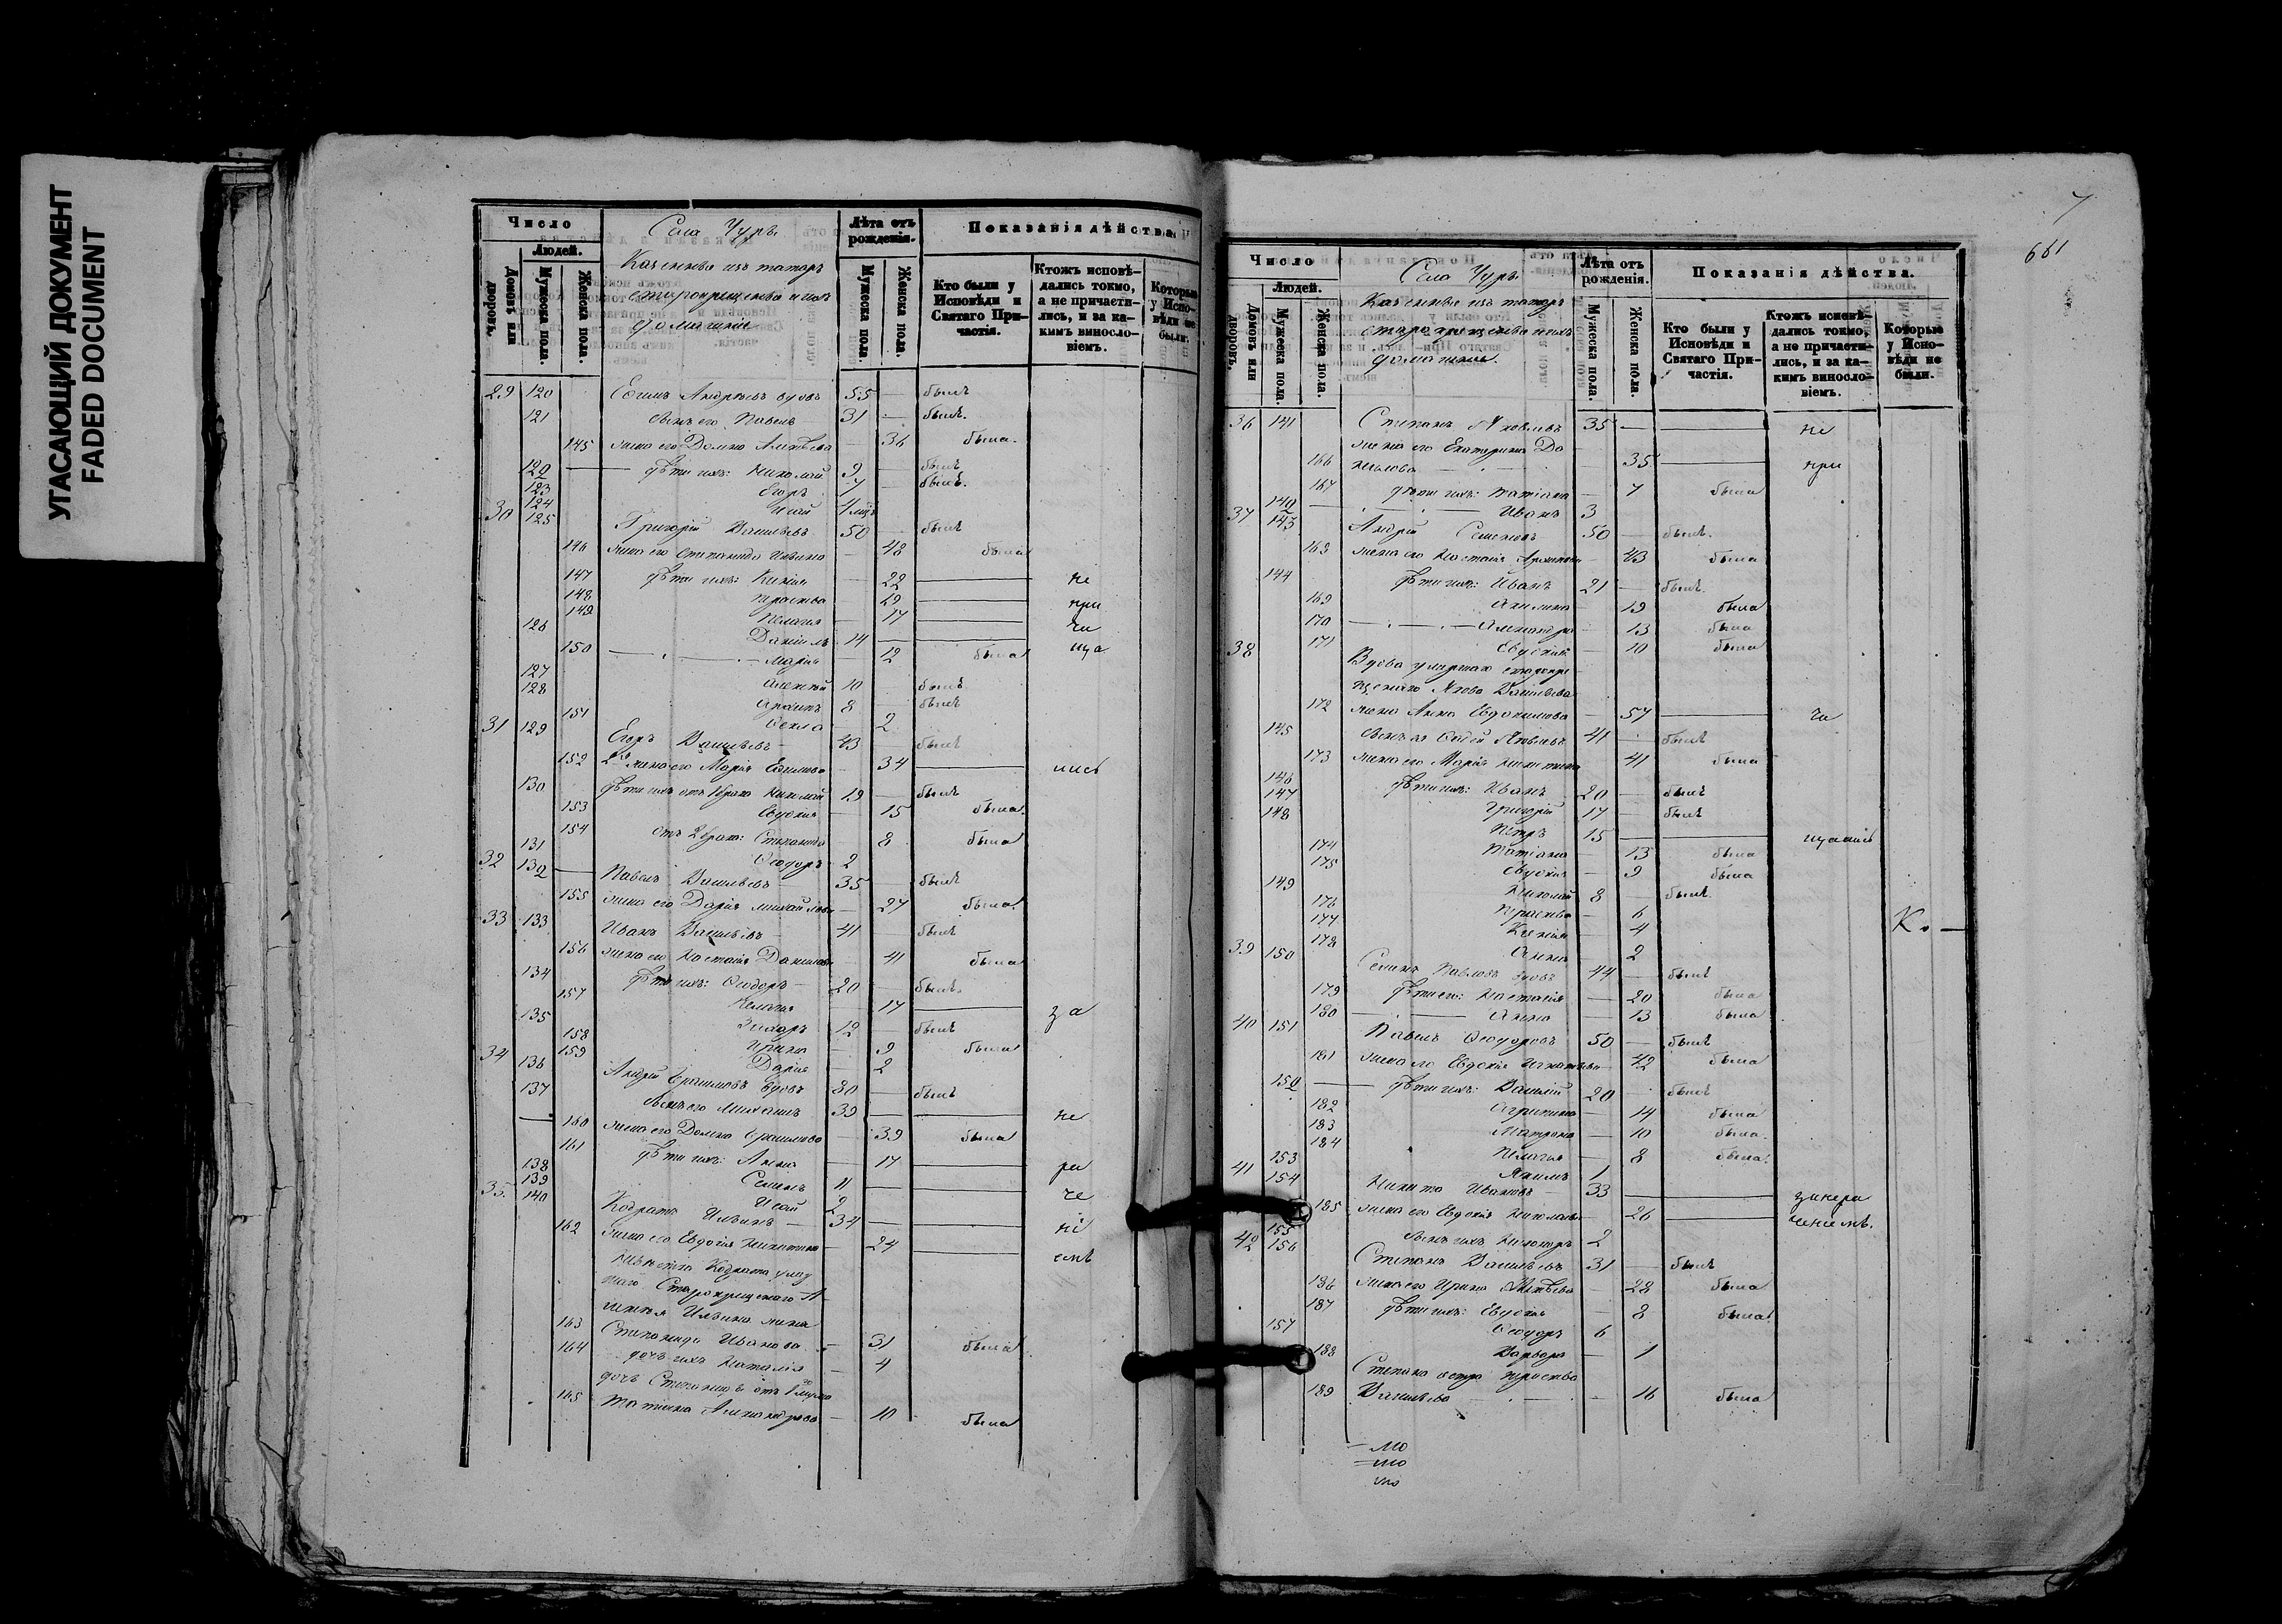 УГАСАЮЩИЙ ДОКУМЕНТ
FADED DOCUMENT
Число
Людей.
Домовъ или дворовъ.
Мужеска пола.
Женска пола.
Села Чуръ.
Казенные изъ татаръ
старокрещеные и ихъ
домашніе
Лѣта отъ рожденія.
Мужеска пола.
Женска пола.
Показанія дѣйства.
Кто были у Исповѣди и Святаго Причастія.
Ктожъ исповѣдались токмо, а не причастились, и за какимъ винословіемъ.
Которые у Исповѣди не были.
29 120 Ефимъ Андреевъ вдовъ 55 — былъ
121 сынъ его Павелъ 31 — былъ.
145 жена его Домна — 36 была.
122 дѣти ихъ: Николай 9 — былъ
123 Егоръ 7 — былъ.
124 4 мца
30 125 Григорій Васильевъ 50 — былъ
146 жена его Степанида — 48 была
147 дѣти ихъ: Ксенія — 22 — не
148 Праскева — 19 — при
149 Пелагія — 17 — ча
126 Даніилъ 14 — ща
150 Марія — 12 была
127 Алексѣй 10 — былъ
128 8 — былъ
151 Ѳекла — 2
31 129 Егоръ Васильевъ 43 — былъ
152 2я жена его Марія Ефимова — 34 — лись
130 дѣти ихъ отъ 1 брака Николай 19 — былъ
153 Евдокія — 15 была.
154 отъ 2 брака: Степанида — 8 была
131 Ѳеодоръ 2
32 132 Павелъ Васильевъ 35 — былъ
155 жена его Дарія Михайлова — 27 была.
33 133 Иванъ Васильевъ 41 — былъ
156 жена его Настасія Данилова — 41 была
134 дѣти ихъ: Ѳеодоръ 20 — былъ.
157 Пелагія — 17 — за
135 Захаръ 12 — былъ
158 Ирина — 9 была
159 Дарія — 2
34 136 Андрей вдовъ 80 — былъ
137 сынъ его Михаилъ 39 — не
160 жена его Домна — 39 была
161 дѣти ихъ: Анна — 17 — ра
138 Семенъ 11 — че
139 Исай 2
35. 140 Кодратъ Ильинъ 34 — ні
162 жена его Евдокія Никитина — 24 — емъ
Невѣстка Кодрата
Старокрещенаго
Ильина жена
163 Степанида Иванова — 31 была
164 дочь ихъ Наталія — 4
дочь Степаниды отъ 1 мужа
165 Татіана Александрова — 10 была
7
661
Число
Людей.
Домовъ или дворовъ.
Мужеска пола.
Женска пола.
Села Чуръ.
Казенные изъ татаръ
старокрещеные и ихъ
домашніе.
Лѣта отъ рожденія.
Мужеска пола.
Женска пола.
Показанія дѣйства.
Кто были у Исповѣди и Святаго Причастія.
Ктожъ исповѣдались токмо, а не причастились, и за какимъ винословіемъ.
Которые у Исповѣди не были.
36 141 Степанъ Яковлевъ 35 — не
жена его Екатерина Да
166 нилова — 35 — при
167 дѣти ихъ: Татіана — 7 была
142 Иванъ 3
37 143 Андрей Семеновъ 50 — былъ.
168 жена его Настасія — 43 была
144 дѣти ихъ: Иванъ 21 — былъ.
169 Акилина — 19 была
170 Александра — 13 была
171 Евдокія — 10 была
38 Вдова умершаго старокре
щенаго Якова Васильева
172 жена Анна Евдокимова — 57 — ча
145 сынъ ея Яковлевъ 41 — былъ
173 жена его Марія Никитина 41 была
146 дѣти ихъ: Иванъ 20 — былъ
147 Григорій 17 — былъ
148 Петръ 15 — щались
174 Татіана — 13 была
175 Евдокія — 9 была
149 Николай 8 — былъ.
176 Праскева — 6
177 Ксенія — 4
178 Анна — 2
39 150 Семенъ Павловъ вдовъ 44 — былъ
179 дѣти его: Настасія — 20 была
180 Анна — 13 была
40 151 Павелъ Ѳеодоровъ 50 — былъ
181 жена его Евдокія Игнатьева — 42 была
152 дѣти ихъ: Василій 20 — былъ
182 Агрипина — 14 была
183 Матрона — 10 была.
184 Пелагія — 8 была.
153 Якимъ 1
41 154 Никита Ивановъ 33 — занера
185 жена его Евдокія Николаева — 26 — ченіемъ.
155 сынъ ихъ Никаноръ 2
42 156 Степанъ Васильевъ 31 — былъ
186 жена его Ирина — 28 была
187 дѣти ихъ: Евдокія — 8 была.
157 Ѳеодоръ 6
188 Варвара — 1
Степана сестра Праскева
189 Васильева — 16 была
К. —